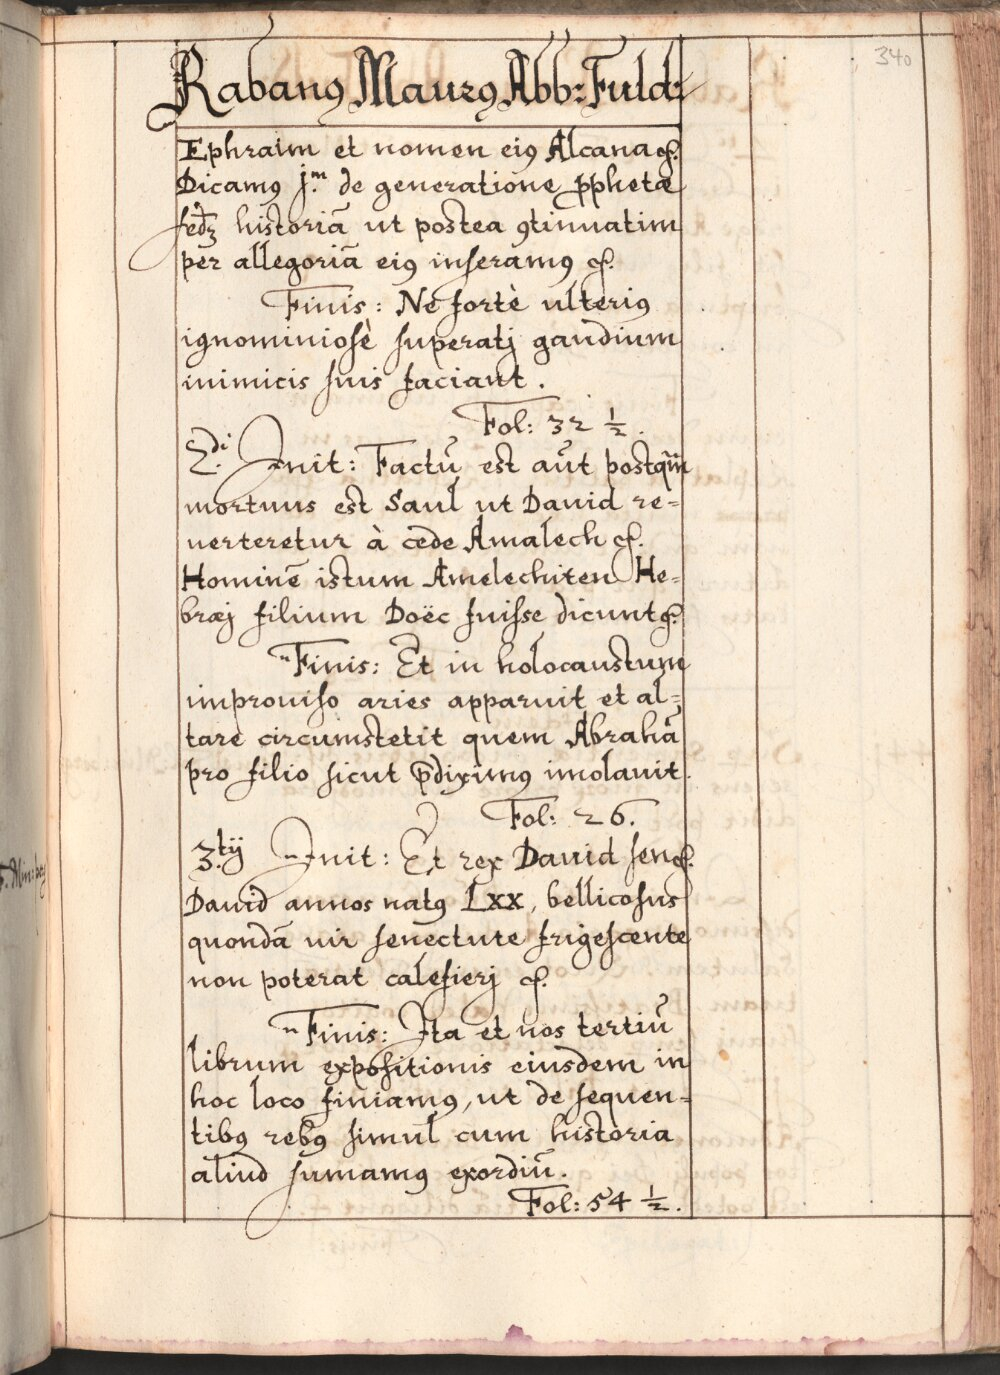 340
Rabanꝰ Maurꝰ Abb: Fuld:
Ephraim et nomen eiꝰ Alcana &c.
Dicamꝰ j.ᵐ de generatione ꝓphetæ
sed̄ꝫ historiā ut postea ꝯtinuatim
per allegoriā eiꝰ inseramꝰ &c.
Finis: Ne fortè ulteriꝰ
ignominiosè superatj gaudium
inimicis suis faciant.
Fol: 32 ½.
2.di Init: Factū est aūt postqūm
mortuus est Saul ut Dauid re=
uerteretur à cede Amalech &c.
Hominē istum Amelechiten He=
bræj filium Doëc fuisse dicunt &c.
Finis: Et in holocaustum
improuiso aries apparuit et al=
tare circumstetit quem Abrahā
pro filio sicut p̄diximꝰ imolauit.
Fol: 26.
3.tij Init: Et rex Dauid sen &c.
Dauid annos natꝰ Lxx, bellicosus
quondā uir senectute frigescente
non poterat calefierj &c.
Finis: Ita et nos tertiū
librum expositionis eiusdem in
hoc loco finiamꝰ, ut de sequen=
tibꝰ rebꝰ simul cum historia
aliud sumamꝰ exordiū.
Fol: 54 ½.